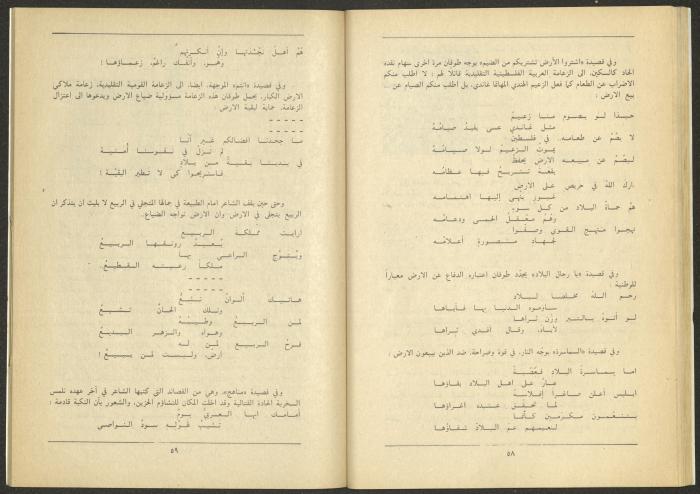 وفي قصيدة «اشتروا الأرض تشتريكم من الضيم» يوجه طوقان مرة اخرى سهام نقده
الحاد كالسكين، الى الزعامة العربية الفلسطينية التقليدية قائلا لهم : لا اطلب منكم
الاضراب عن الطعام كما فعل الزعيم الهندي المهاتما غاندي، بل أطلب منكم الصيام عن
بيع الارض :
حبذا لو يصوم منا زعيم
مثل غاندي عسى يفيد صيامه
لا يصم عن طعامه. في فلسطين
يموت الزعيم لولا طعامه
ليصم عن مبيعه الارض يحفظ
بقعة تستريح فيها عظامه
بارك الله في حريص على الارض
غيور ينهي إليها اهتمامه
هم حماة البلاد من كل سوء
وهم معقل الحمى ودعامه
نهجوا منهج القوي وصفوا
لجهاد منتصورة أعلامه
وفي قصيدة «يا رجال البلاد» يجدد طوقان اعتباره الدفاع عن الارض معياراً
للوطنية :
رحم الله مخلصا لبلاد
ساوموه الدنيا بها فأباها
لو أتوه بالتبر وزن ثراها
لأباه، وقال أفدي ثراها
وفي قصيدة «السماسرة» يوجه النار، في قوة وصراحة، ضد الذين يبيعون الارض :
اما سماسرة البلاد فعصبة
عار على اهل البلاد بقاؤها
ابليس أعلن صاغراً إفلاسه
لما تحقق عنده اغراؤها
يتنعمون مكرمين كأنما
لنعيمهم عم البلاد شقاؤها
٥٨
هم أهل نجدتها وإن أنكرتهم
وهمو، وأنفك راغم، زعماؤها !
وفي قصيدة «انتم» الموجهة، ايضا، الى الزعامة القومية التقليدية، زعامة ملاكي
الارض الكبار، يحمل طوقان هذه الزعامة مسؤولية ضياع الارض ويدعوها الى اعتزال
الزعامة، حماية لبقية الارض :
- - - - -
- - - - -
ما جحدنا افضالكم غير أنا
لم تزل في نفوسنا أمنية
في يدينا بقية من بلاد
فاستريحوا كي لا تطير البقية !
وحتى حين يقف الشاعر امام الطبيعة في جمالها المتجلي في الربيع لا يلبث ان يتذكر ان
الربيع يتجلى في الارض وان الارض تواجه الضياع..
أرأيت مملكة الربيع
يعيد رونقها الربيع
ويتوج الراعي بها
ملكاً رعيته القطيع.
- - - - -
- - - - -
هاتيك ألوان تشع
وتلك الحان تشيع
لمن الربيع وطيبه
وهواه والزهر البديع
فرح الربيع لمن له
أرض، وليست لمن يبيع !
وفي قصيدة «مناهج»، وهي من القصائد التي كتبها الشاعر في آخر عهده نلمس
السخرية الحادة القتالية وقد اخلت المكان للتشاؤم الحزين، والشعور بأن النكبة قادمة :
أمامك ايها العربي يوم
تشيب لهوله سود النواصي
٥٩